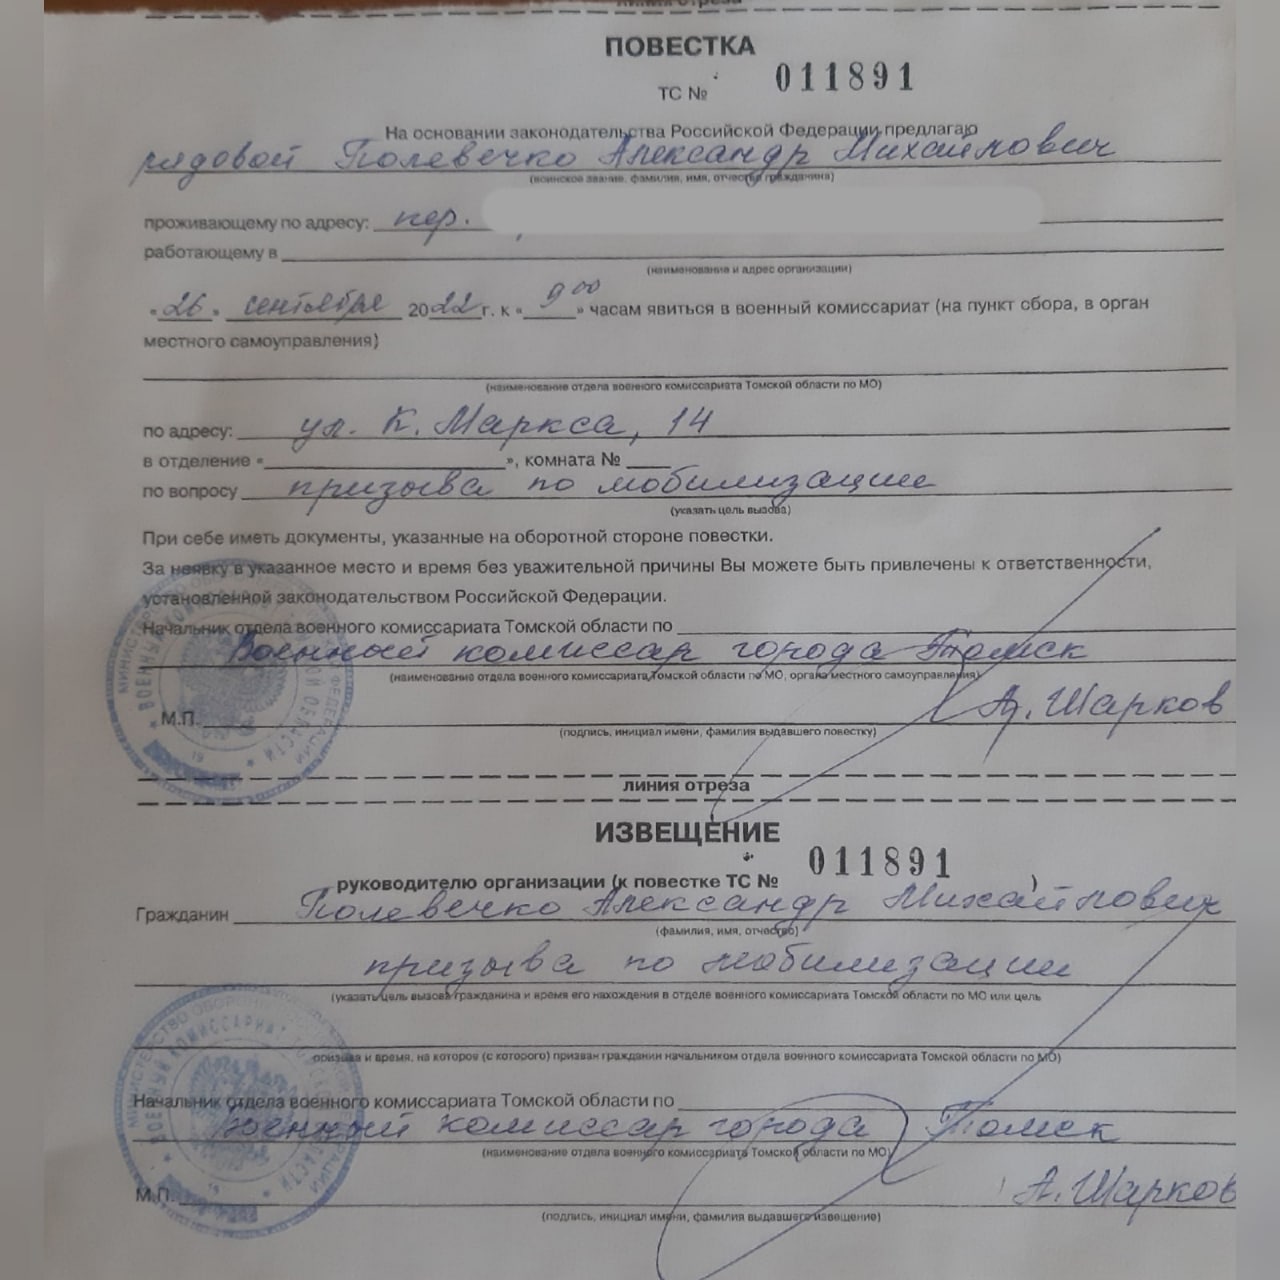 ПОВЕСТКА
ТС № 011891
На основании законодательства Российской Федерации предлагаю
рядовой Полевечко Александр Михайлович
(воинское звание, фамилия, имя, отчество гражданина)
проживающему по адресу: пер.
работающему в
(наименование и адрес организации)
«26» сентября 2022 г. к «9 00» часам явиться в военный комиссариат (на пункт сбора, в орган
местного самоуправления)
(наименование отдела военного комиссариата Томской области по МО)
по адресу: ул. К. Маркса, 14
в отделение « », комната №
по вопросу призыва по мобилизации
(указать цель вызова)
При себе иметь документы, указанные на оборотной стороне повестки.
За неявку в указанное место и время без уважительной причины Вы можете быть привлечены к ответственности,
установленной законодательством Российской Федерации.
Начальник отдела военного комиссариата Томской области по
Военный комиссар города Томск
(наименование отдела военного комиссариата Томской области по МО, органа местного самоуправления)
М.П. А. Шарков
(подпись, инициал имени, фамилия выдавшего повестку)
линия отреза
ИЗВЕЩЕНИЕ
руководителю организации (к повестке ТС № 011891 )
Гражданин Полевечко Александр Михайлович
(фамилия, имя, отчество)
призыва по мобилизации
(указать цель вызова гражданина и время его нахождения в отделе военного комиссариата Томской области по МО или цель
призыва и время, на которое (с которого) призван гражданин начальником отдела военного комиссариата Томской области по МО)
Начальник отдела военного комиссариата Томской области по
Военный комиссар города Томск
(наименование отдела военного комиссариата Томской области по МО)
М.П. А. Шарков
(подпись, инициал имени, фамилия выдавшего извещение)